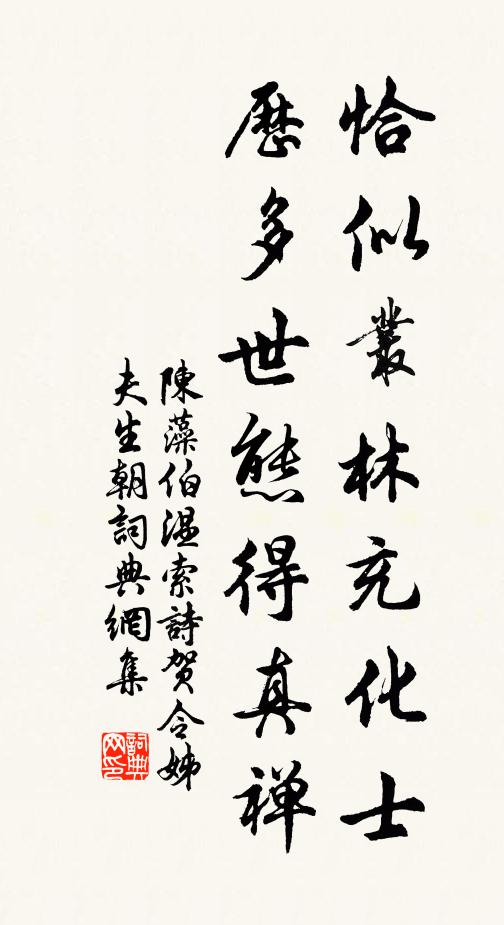 恰似叢林充化士
歷多世態得真禪
陳藻伯温索詩賀令姊
夫生朝詞典網集
詞典网印